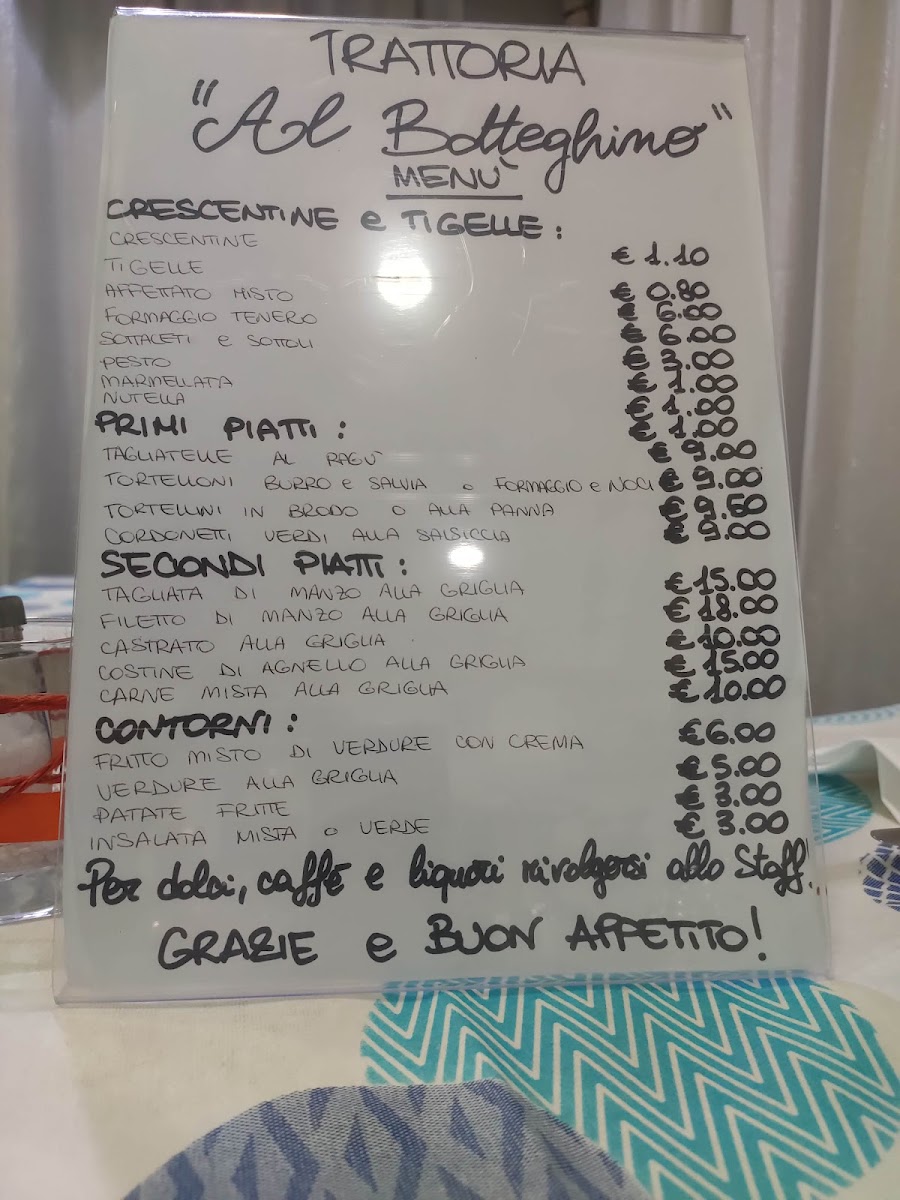 TRATTORIA
"Al Botteghino"
MENÙ
CRESCENTINE e TIGELLE:
CRESCENTINE € 1.10
TIGELLE € 0.80
AFFETTATO MISTO € 6.00
FORMAGGIO TENERO € 6.00
SOTTACETI e SOTTOLI € 3.00
PESTO € 1.00
MARMELLATA € 1.00
NUTELLA € 1.00
PRIMI PIATTI:
TAGLIATELLE AL RAGÙ € 9.00
TORTELLONI BURRO e SALVIA o FORMAGGIO e NOCI € 9.00
TORTELLINI IN BRODO O ALLA PANNA € 9.50
CORDONETTI VERDI ALLA SALSICCIA € 9.00
SECONDI PIATTI:
TAGLIATA DI MANZO ALLA GRIGLIA € 15.00
FILETTO DI MANZO ALLA GRIGLIA € 18.00
CASTRATO ALLA GRIGLIA € 10.00
COSTINE DI AGNELLO ALLA GRIGLIA € 15.00
CARNE MISTA ALLA GRIGLIA € 10.00
CONTORNI:
FRITTO MISTO DI VERDURE CON CREMA € 6.00
VERDURE ALLA GRIGLIA € 5.00
PATATE FRITTE € 3.00
INSALATA MISTA o VERDE € 3.00
Per dolci, caffè e liquori rivolgersi allo Staff!..
GRAZIE e BUON APPETITO!